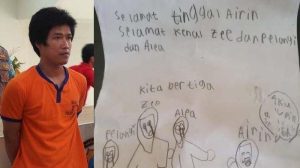 Selamat tinggal Airin
Selamat kenal Zee dan Pelangi
dan Alea
Kita bertiga
Zee
Pelangi
Alea
Airin